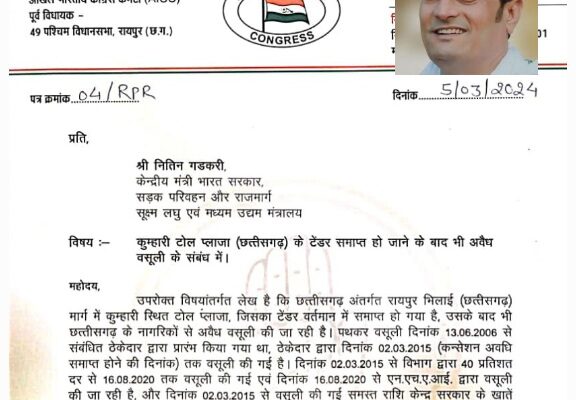 अखिल भारतीय कांग्रेस कमेटी (AICC)
पूर्व विधायक -
49 पश्चिम विधानसभा, रायपुर (छ.ग.)
CONGRESS
01
पत्र क्रमांक 04/RPR
दिनांक 5/03/2024
प्रति,
श्री नितिन गडकरी,
केन्द्रीय मंत्री भारत सरकार,
सड़क परिवहन और राजमार्ग
सूक्ष्म लघु एवं मध्यम उद्यम मंत्रालय
विषय :- कुम्हारी टोल प्लाजा (छत्तीसगढ़) के टेंडर समाप्त हो जाने के बाद भी अवैध
वसूली के संबंध में।
महोदय,
उपरोक्त विषयांतर्गत लेख है कि छत्तीसगढ़ अंतर्गत रायपुर भिलाई (छत्तीसगढ़)
मार्ग में कुम्हारी स्थित टोल प्लाजा, जिसका टेंडर वर्तमान में समाप्त हो गया है, उसके बाद भी
छत्तीसगढ़ के नागरिकों से अवैध वसूली की जा रही है। पथकर वसूली दिनांक 13.06.2006 से
संबंधित ठेकेदार द्वारा प्रारंभ किया गया था, ठेकेदार द्वारा दिनांक 02.03.2015 (कन्सेशन अवधि
समाप्त होने की दिनांक) तक वसूली की गई है। दिनांक 02.03.2015 से विभाग द्वारा 40 प्रतिशत
दर से 16.08.2020 तक वसूली की गई एवं दिनांक 16.08.2020 से एन.एच.ए.आई. द्वारा वसूली
की जा रही है, और दिनांक 02.03.2015 से वसूली की गई समस्त राशि केन्द्र सरकार के खातें